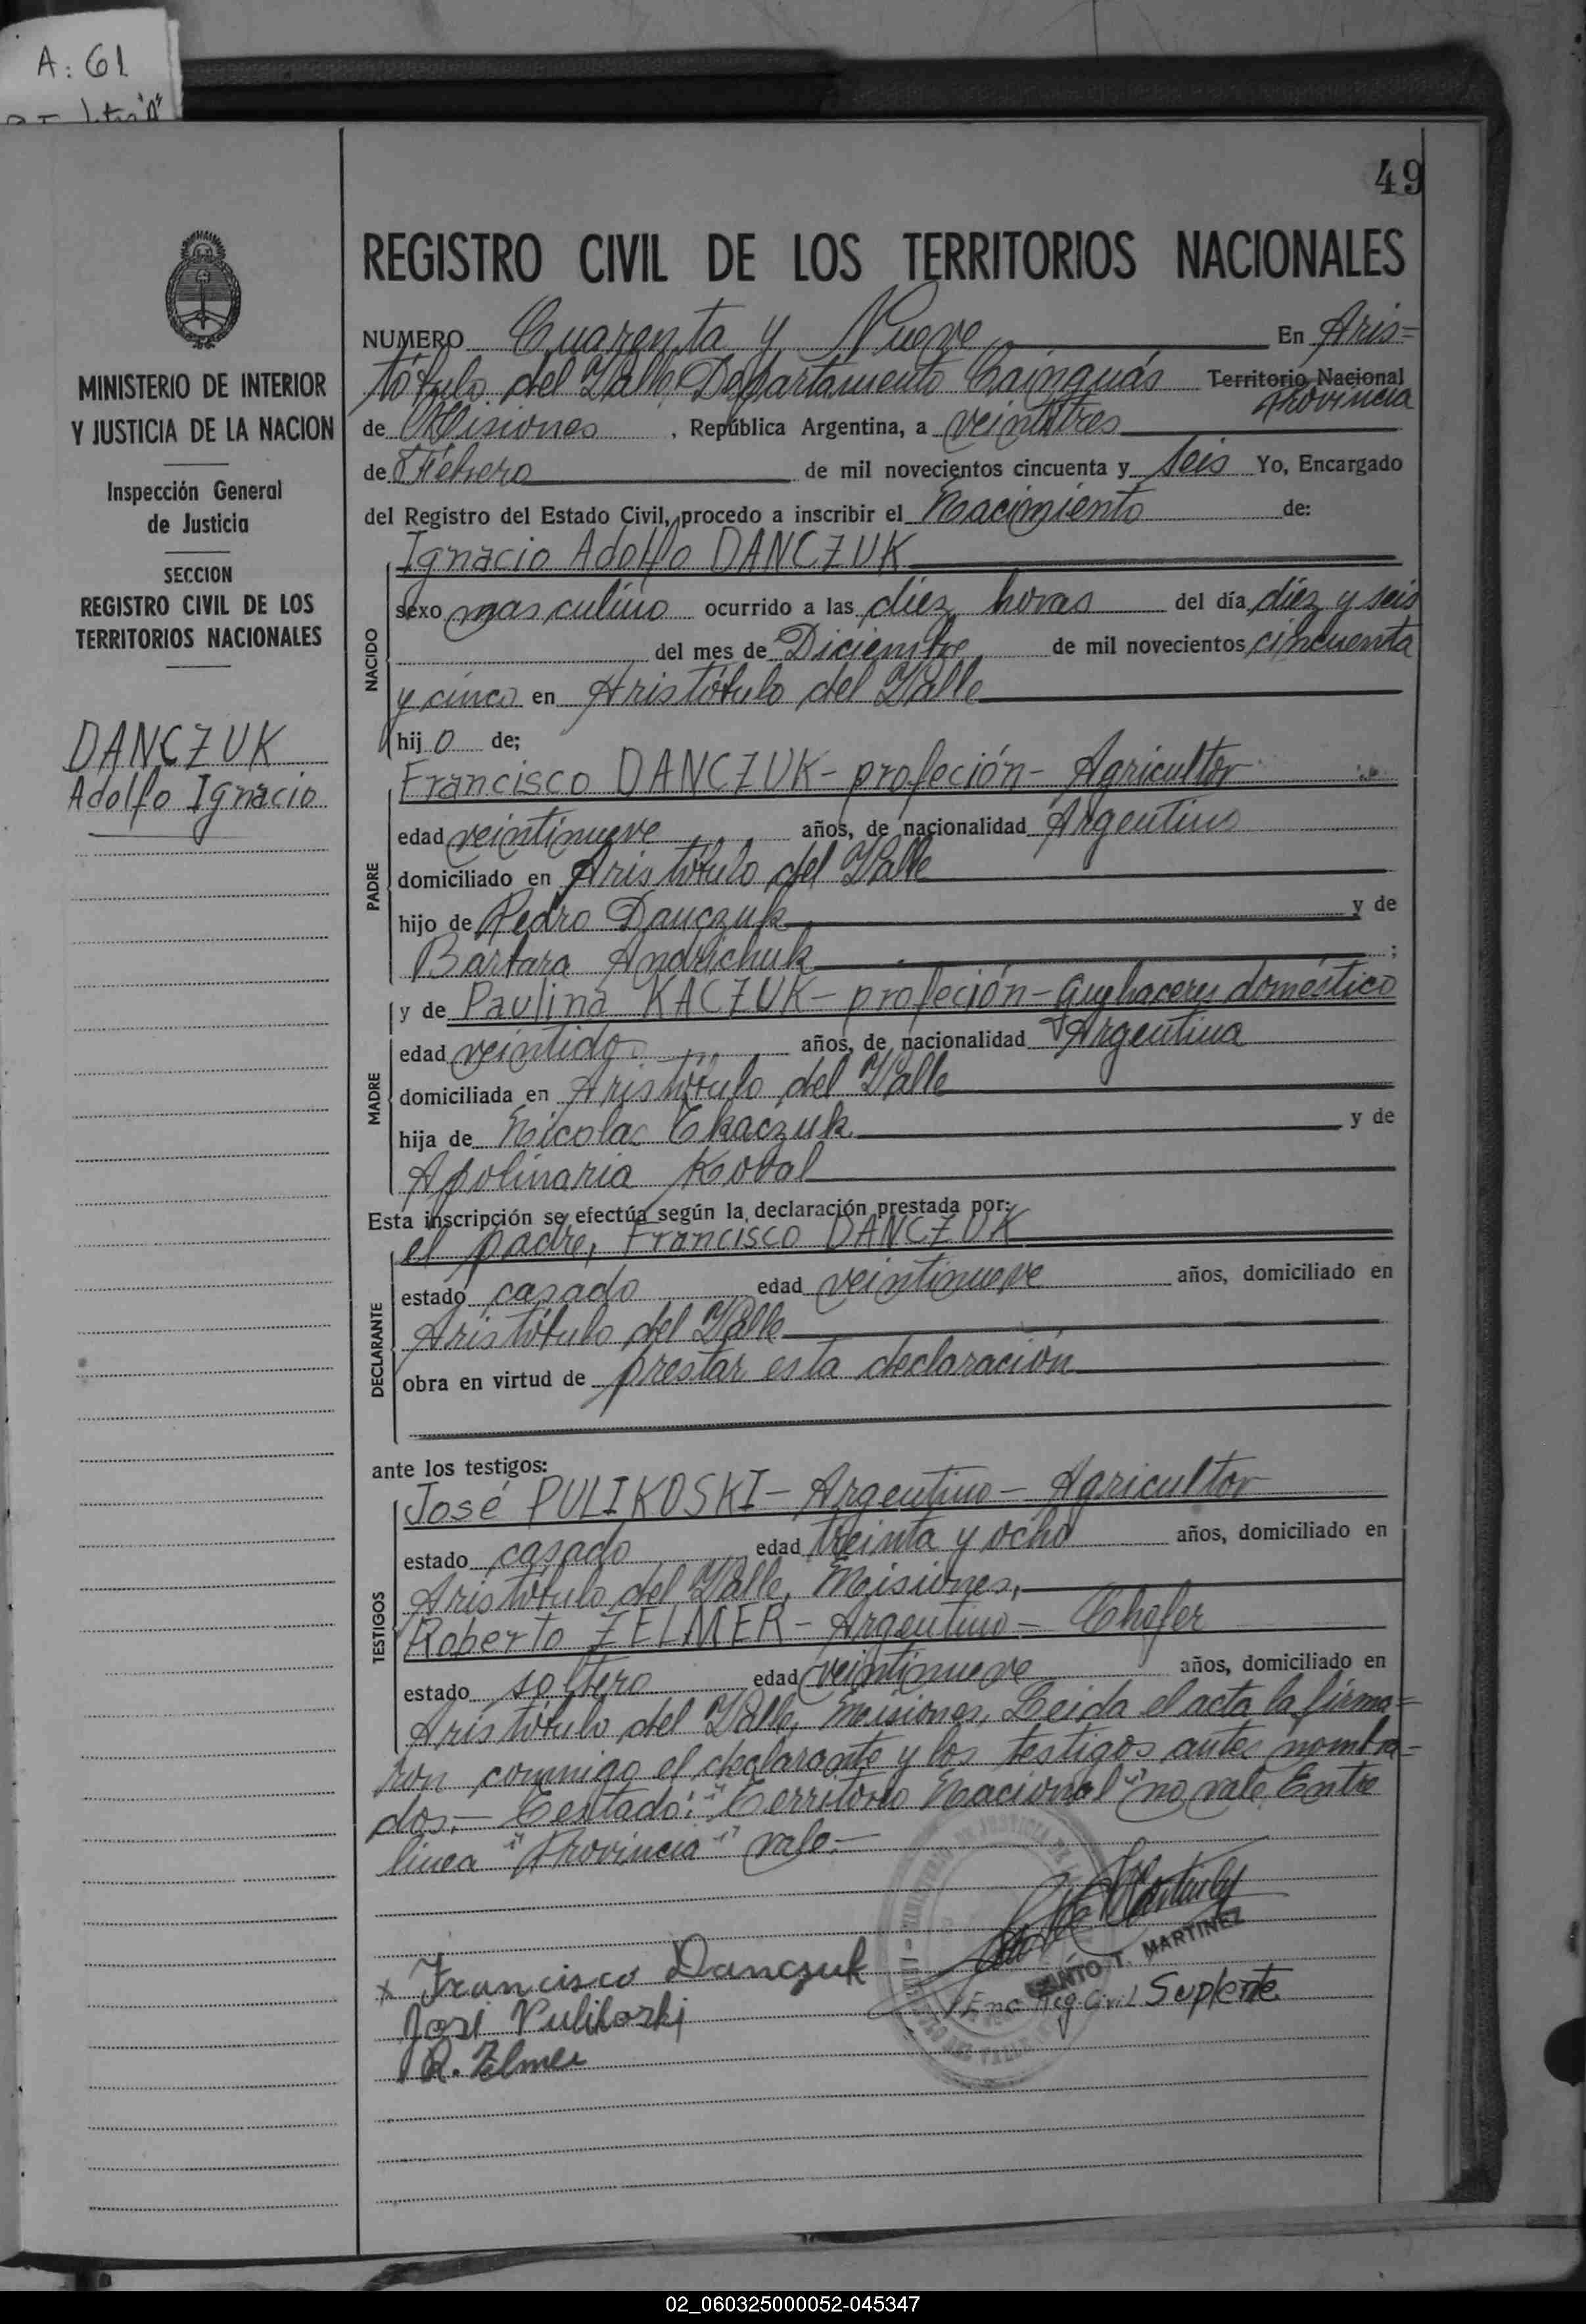 A: 61
49
MINISTERIO DE INTERIOR
Y JUSTICIA DE LA NACION
Inspección General
de Justicia
SECCION
REGISTRO CIVIL DE LOS
TERRITORIOS NACIONALES
DANCZUK
Adolfo Ignacio
REGISTRO CIVIL DE LOS TERRITORIOS NACIONALES
NUMERO Cuarenta y Nueve En Aris=
tóbulo del Valle, Departamento Cainguás Territorio Nacional
Provincia
de Misiones, República Argentina, a veintitres
de Febrero de mil novecientos cincuenta y seis Yo, Encargado
del Registro del Estado Civil, procedo a inscribir el Nacimiento de:
NACIDO
Ignacio Adolfo DANCZUK
sexo masculino ocurrido a las diez horas del día diez y seis
del mes de Diciembre de mil novecientos cincuenta
y cinco en Aristóbulo del Valle
hijo de;
PADRE
Francisco DANCZUK- profeción- Agricultor
edad veintinueve años, de nacionalidad Argentino
domiciliado en Aristóbulo del Valle
hijo de Pedro Danczuk y de
Barbara Andrichuk ;
MADRE
y de Paulina KACZUK- profeción- Quehaceres doméstico
edad veintido años, de nacionalidad Argentina
domiciliada en Aristóbulo del Valle
hija de Nicolas Tkaczuk y de
Apolinaria Koval
Esta inscripción se efectúa según la declaración prestada por:
DECLARANTE
el padre, Francisco DANCZUK
estado casado edad veintinueve años, domiciliado en
Aristóbulo del Valle
obra en virtud de prestar esta declaración
ante los testigos:
TESTIGOS
José PULIKOSKI- Argentino- Agricultor
estado casado edad treinta y ocho años, domiciliado en
Aristóbulo del Valle, Misiones,
Roberto ZELMER- Argentino- Chofer
estado soltero edad veintinueve años, domiciliado en
Aristóbulo del Valle, Misiones, Leida el acta la firma=
ron conmigo el declarante y los testigos antes nombra-
dos.- Testado: "Territorio Nacional" no vale. Entre
linea "Provincia" vale.-
SANTO T. MARTINEZ
Enc Reg. Civil Suplente
x Francisco Danczuk
José Pulikoski
R. Zelmer
02_060325000052-045347